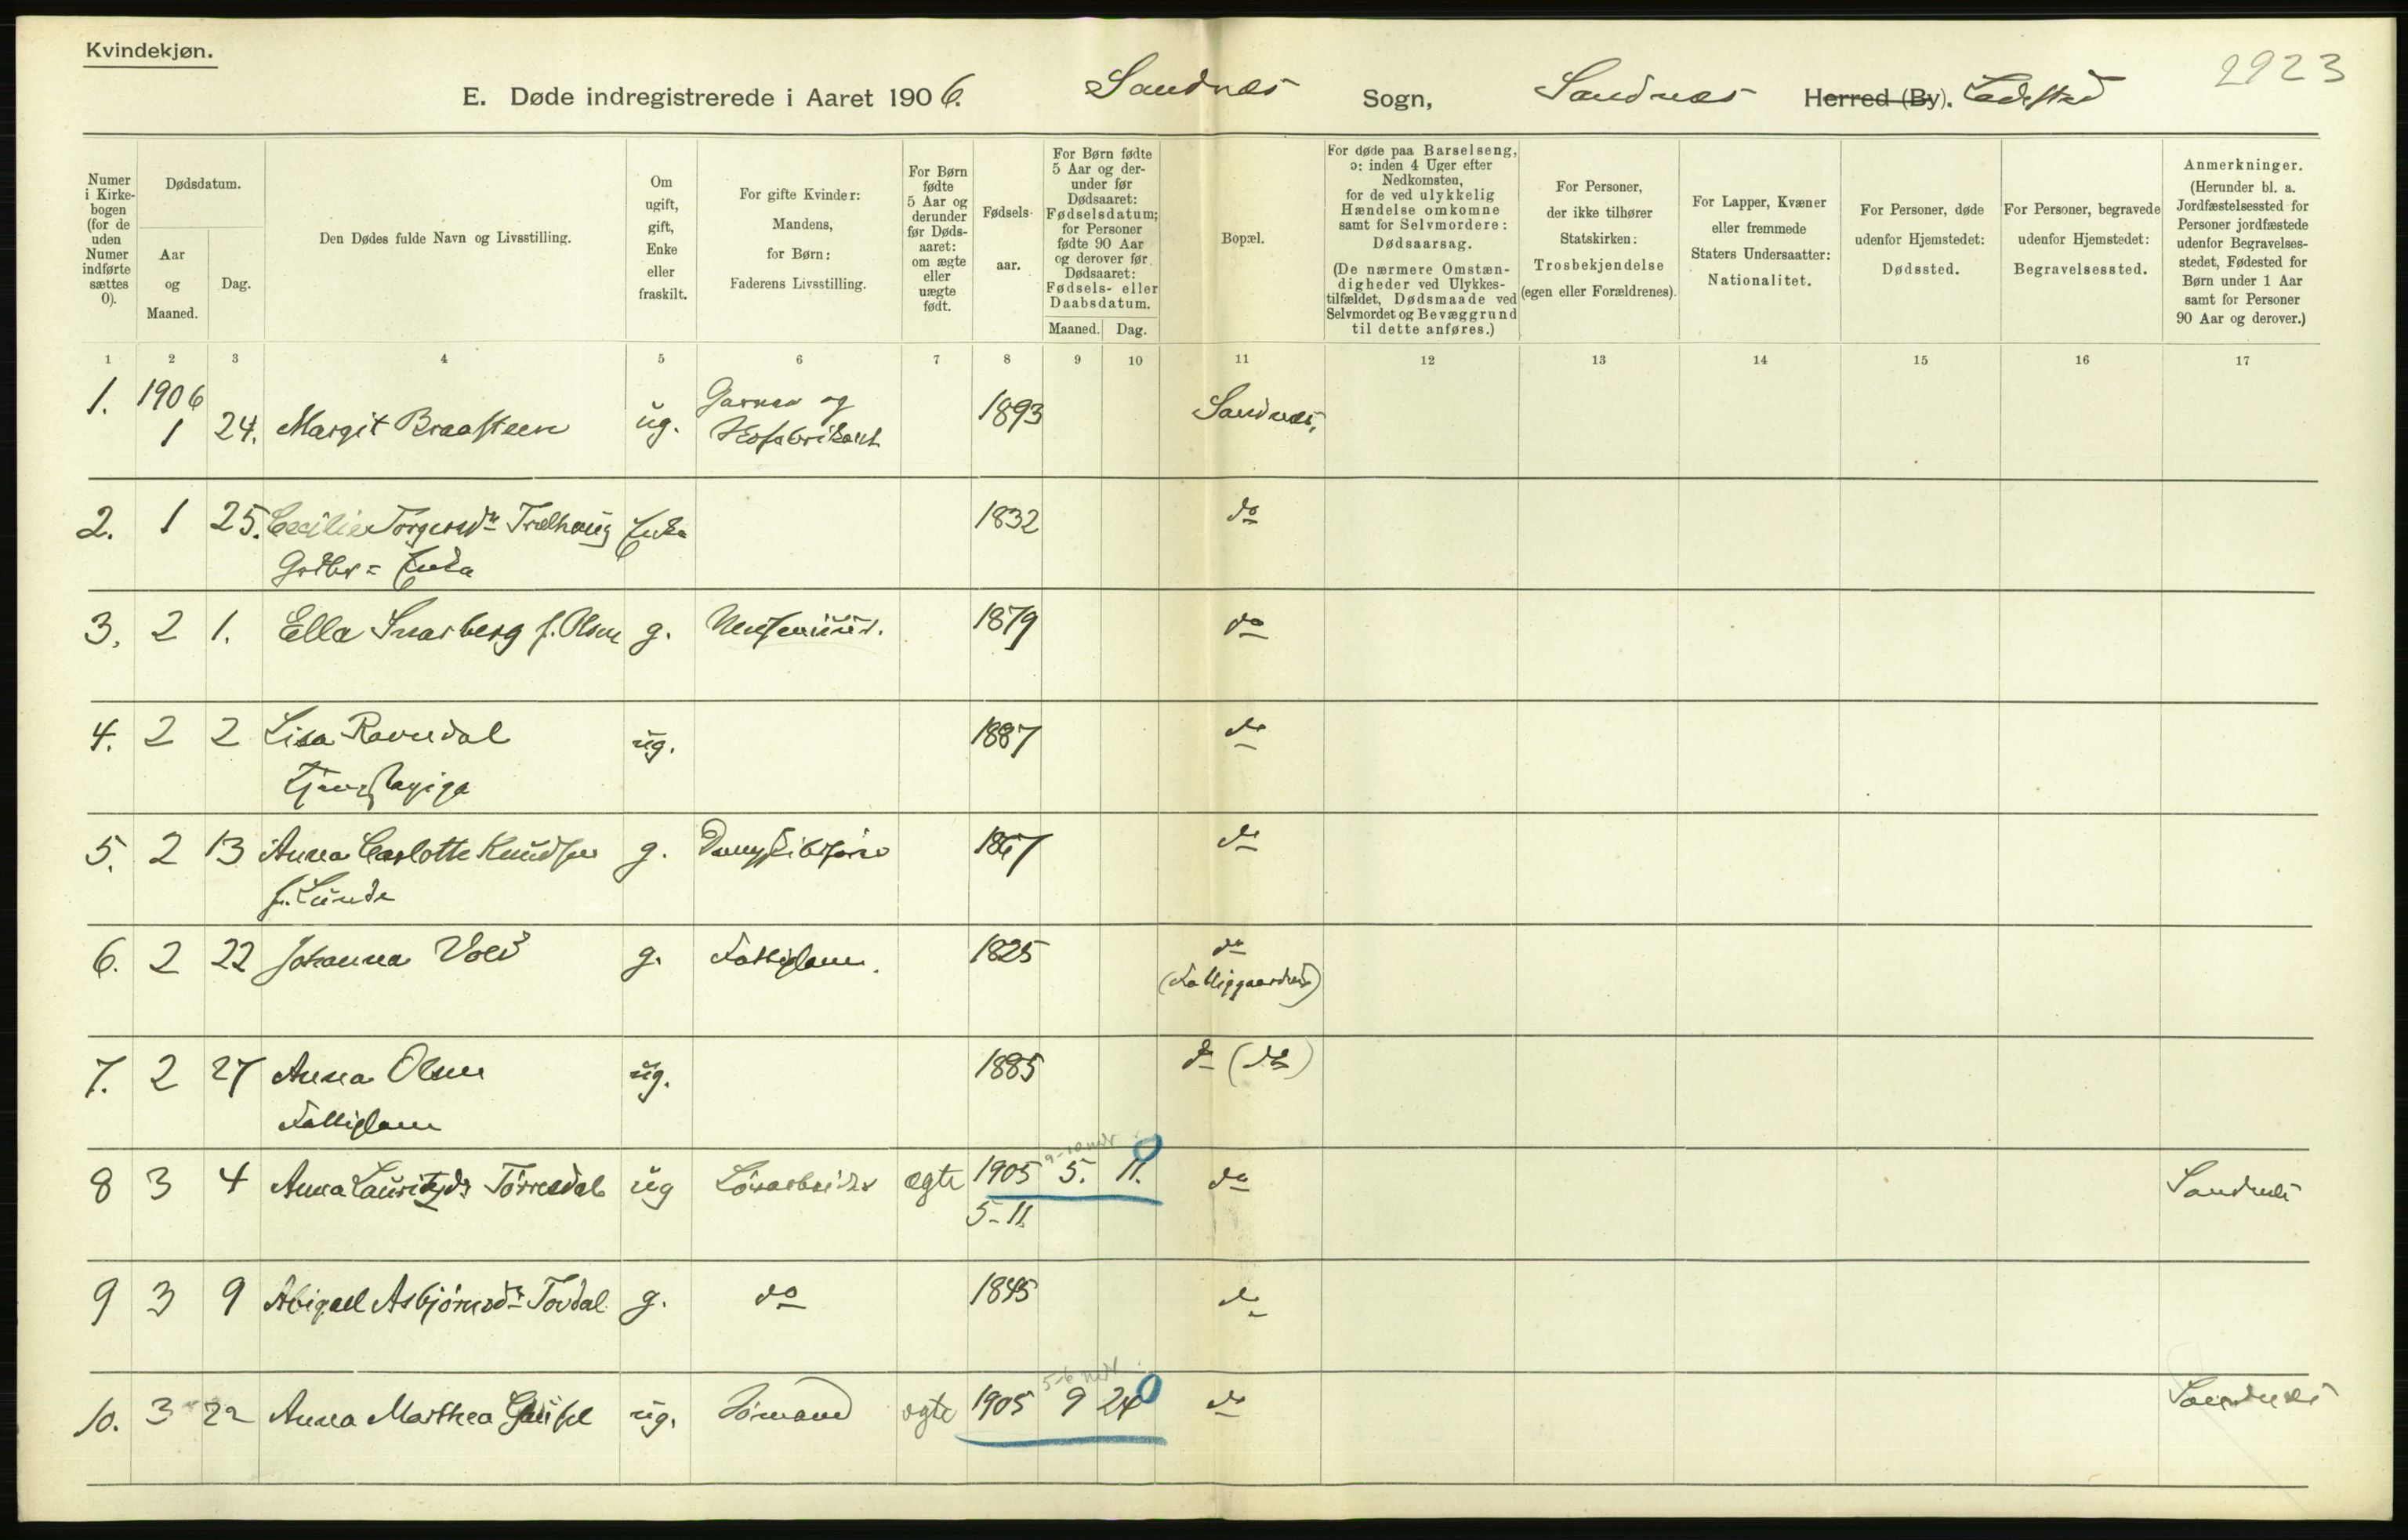 Kvindekjøn.
2923
E. Døde indregistrerede i Aaret 1906. Sandnæs Sogn, Sandnæs Herred (By). Ladested
Numer i Kirkebogen (for de uden Numer indførte sættes 0).
Dødsdatum.
Aar og Maaned.
Dag.
Den Dødes fulde Navn og Livsstilling.
Om ugift, gift, Enke eller fraskilt.
For gifte Kvinder: Mandens, for Børn: Faderens Livsstilling.
For Børn fødte 5 Aar og derunder før Dødsaaret: om ægte eller uægte født.
Fødselsaar.
For Børn fødte 5 Aar og derunder før Dødsaaret: Fødselsdatum; for Personer fødte 90 Aar og derover før Dødsaaret: Fødsels- eller Daabsdatum.
Maaned. Dag.
Bopæl.
For døde paa Barselseng, ɔ: inden 4 Uger efter Nedkomsten, for de ved ulykkelig Hændelse omkomne samt for Selvmordere: Dødsaarsag.
(De nærmere Omstændigheder ved Ulykkestilfældet, Dødsmaade ved Selvmordet og Bevæggrund til dette anføres.)
For Personer, der ikke tilhører Statskirken: Trosbekjendelse (egen eller Forældrenes).
For Lapper, Kvæner eller fremmede Staters Undersaatter: Nationalitet.
For Personer, døde udenfor Hjemstedet: Dødssted.
For Personer, begravede udenfor Hjemstedet: Begravelsessted.
Anmerkninger.
(Herunder bl. a. Jordfæstelsessted for Personer jordfæstede udenfor Begravelsesstedet, Fødested for Børn under 1 Aar samt for Personer 90 Aar og derover.)
1 2 3 4 5 6 7 8 9 10 11 12 13 14 15 16 17
1. 1906 1 24. Margit Braasteen ug. Garver og 1893 Sandnæs,
2. 1 25. Cecilie Torgersdr Trælhaug Enke 1832 do
Enke
3. 2 1. Ella Snarberg f. Olsen g. 1879 do
4. 2 2 Lisa Ravndal ug. 1887 do
Tjenestepige
5. 2 13 Anna Carlotte Knudsen g. 1867 do
f. Lunde
6. 2 22 Johanna Vold g. Fattiglem. 1825 do
(Fattiggaarden)
7. 2 27 Anna Olsen ug. 1885 do (do)
Fattiglem
9-10 mdr
8 3 4 Anna Lauritzdr Tórresdal ug Løsarbeider ægte 1905 5. 11. 0 do Sandnæs
5-11.
9 3 9 Abigael Asbjörnsdr Tovdal g. do 1845 do
5-6 mdr
10. 3 22 Anna Marthea ug. Sómand ægte 1905 9 24 0 do Sandnæs